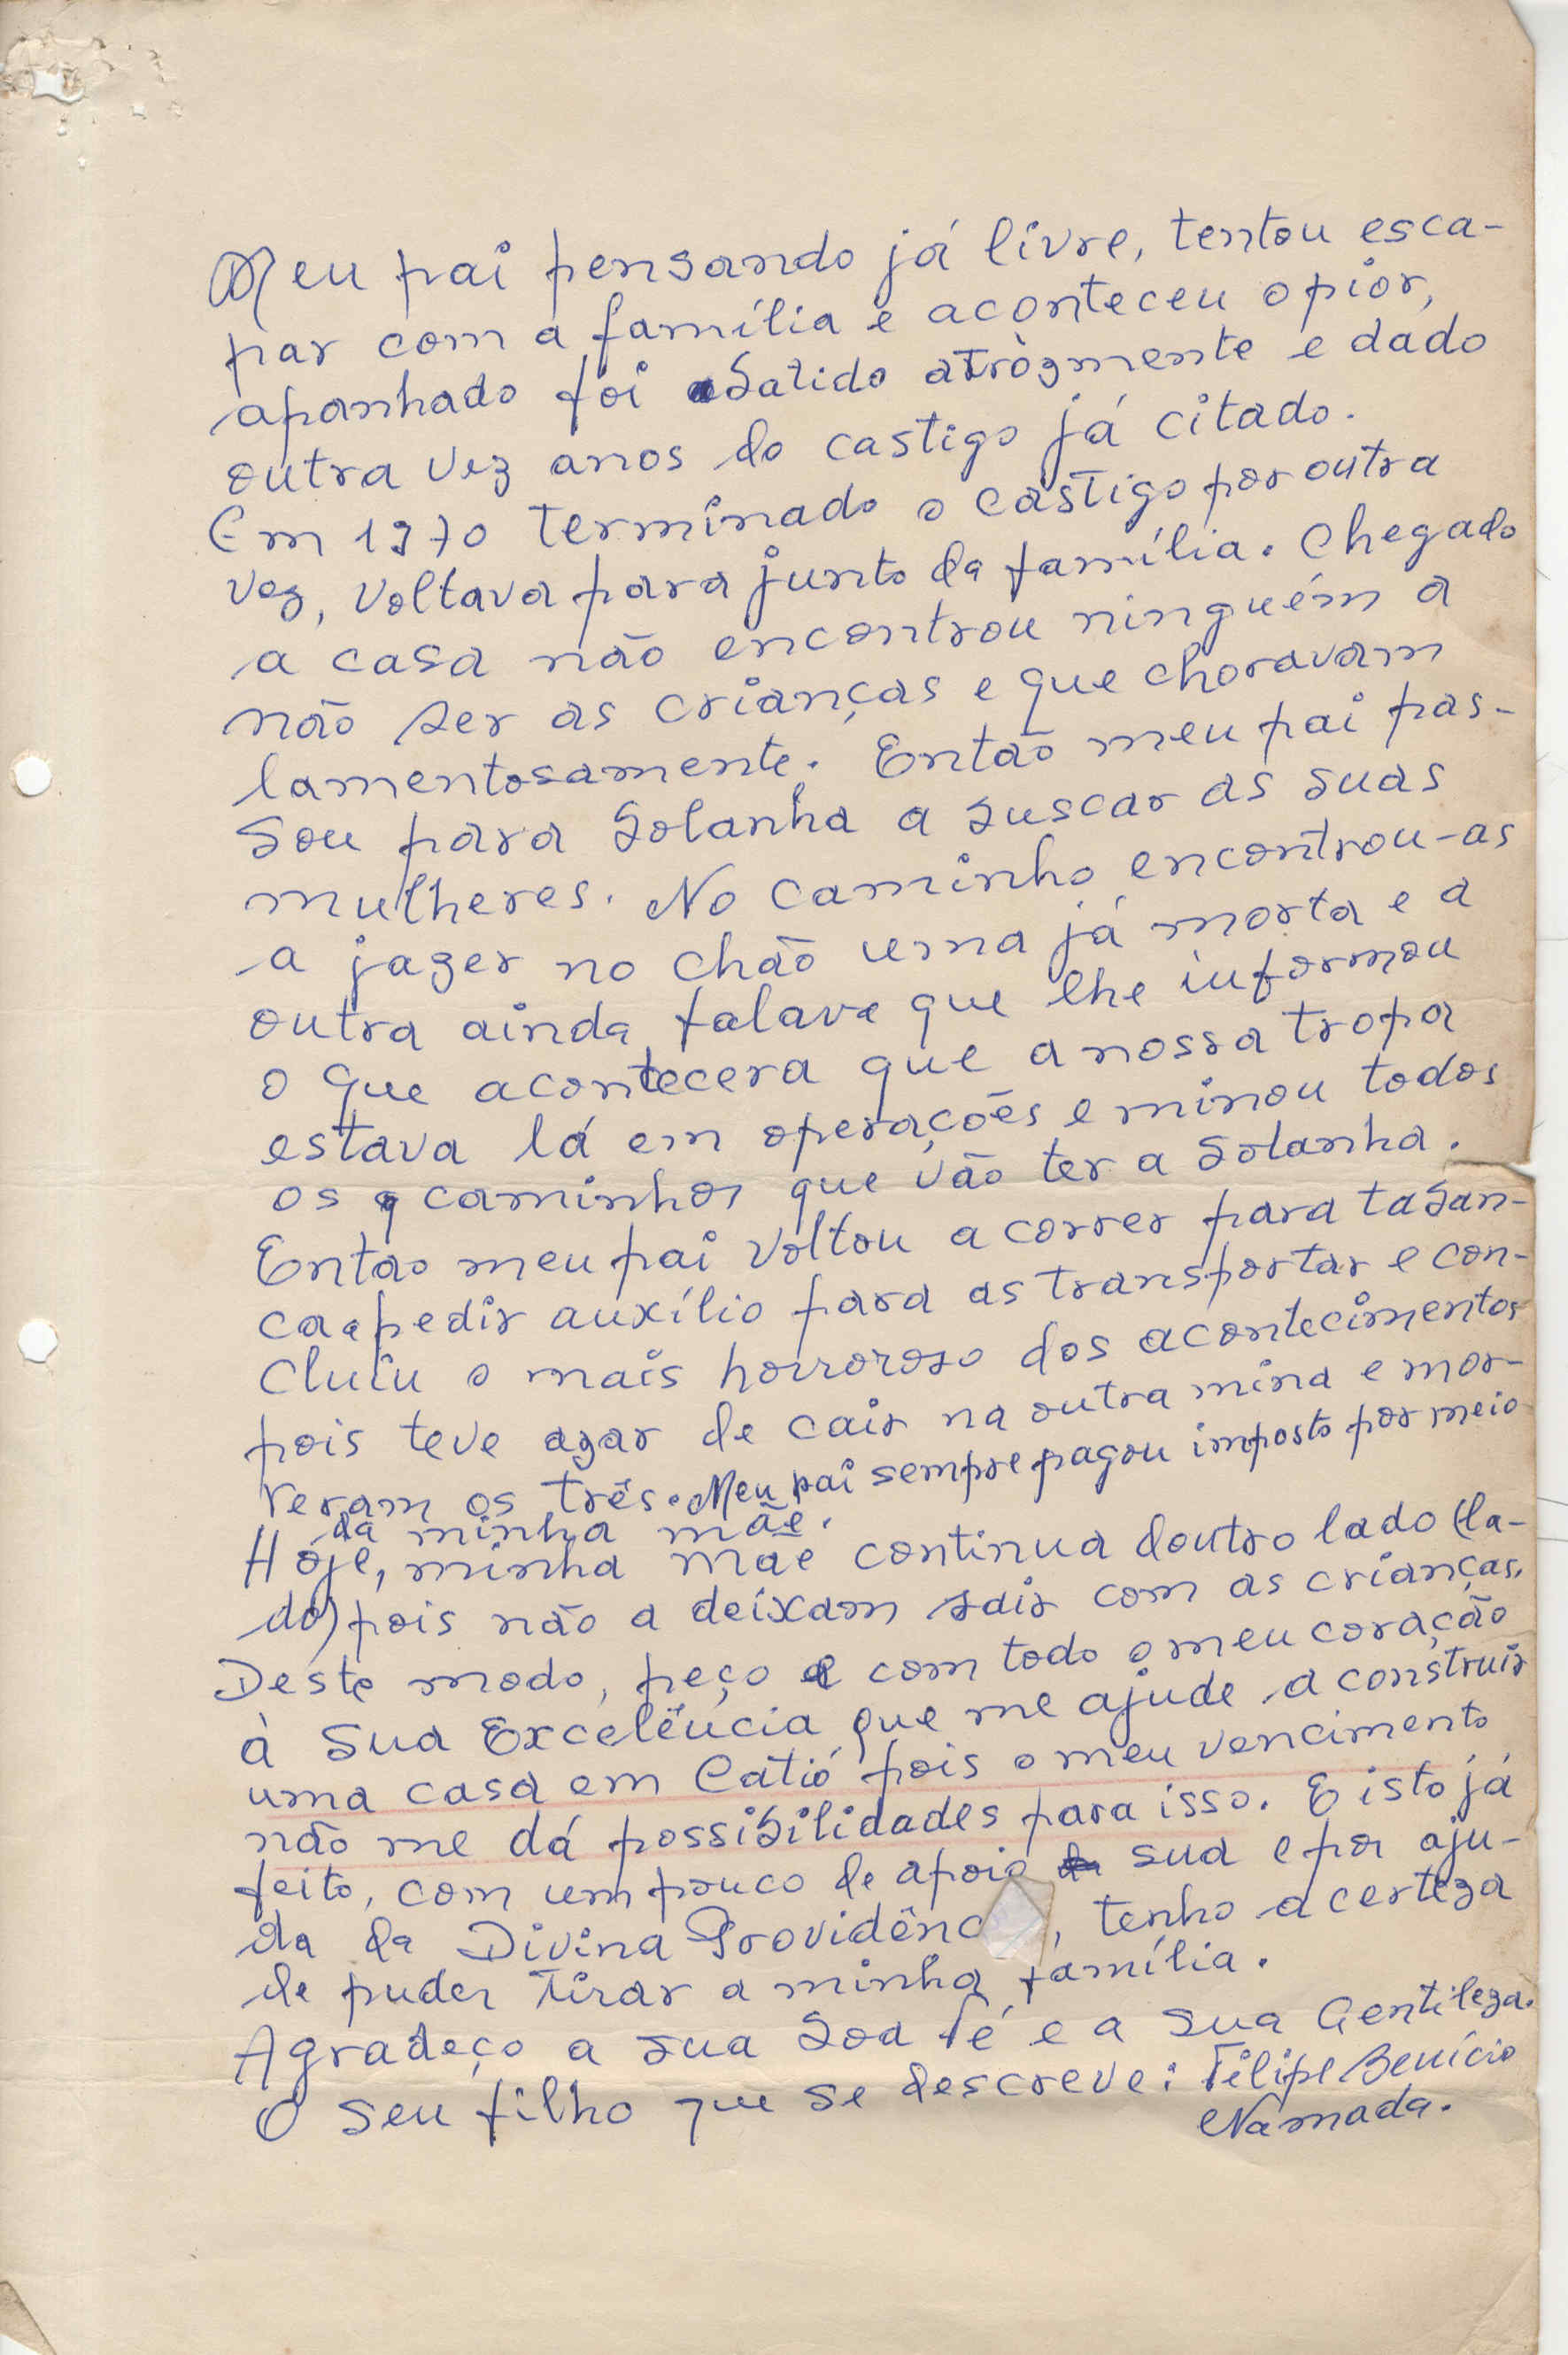 Meu pai pensando já livre, tentou esca-
par com a família e aconteceu o pior,
apanhado foi batido atrozmente e dado
outra vez anos do castigo já citado.
Em 1970 terminado o castigo por outra
vez, voltava para junto da família. Chegado
a casa não encontrou ninguém a
não ser as crianças e que choravam
lamentosamente. Então meu pai pas-
sou para Bolanha a buscar as suas
mulheres. No caminho encontrou-as
a jazer no chão uma já morta e a
outra ainda falava que lhe informou
o que acontecera que a nossa tropa
estava lá em operações e minou todos
os caminhos que vão ter a bolanha.
Entao meu pai voltou a correr para taban-
ca pedir auxílio para as transportar e con-
cluiu o mais horroroso dos acontecimentos
pois teve azar de cair na outra mina e mor-
reram os três. Meu pai sempre pagou imposto por meio
da minha mãe.
Hoje, minha mãe continua doutro lado (la-
do) pois não a deixam sair com as crianças.
Deste modo, peço com todo o meu coração
à Sua Excelência que me ajude a construir
uma casa em Catió pois o meu vencimento
não me dá possibilidades para isso. E isto já
feito, com um pouco de apoio sua e por aju-
da da Divina Providênc , tenho a certeza
de puder tirar a minha família.
Agradeço a sua boa fé e a sua Gentileza.
O seu filho que se descreve: Filipe Benício
Namada.